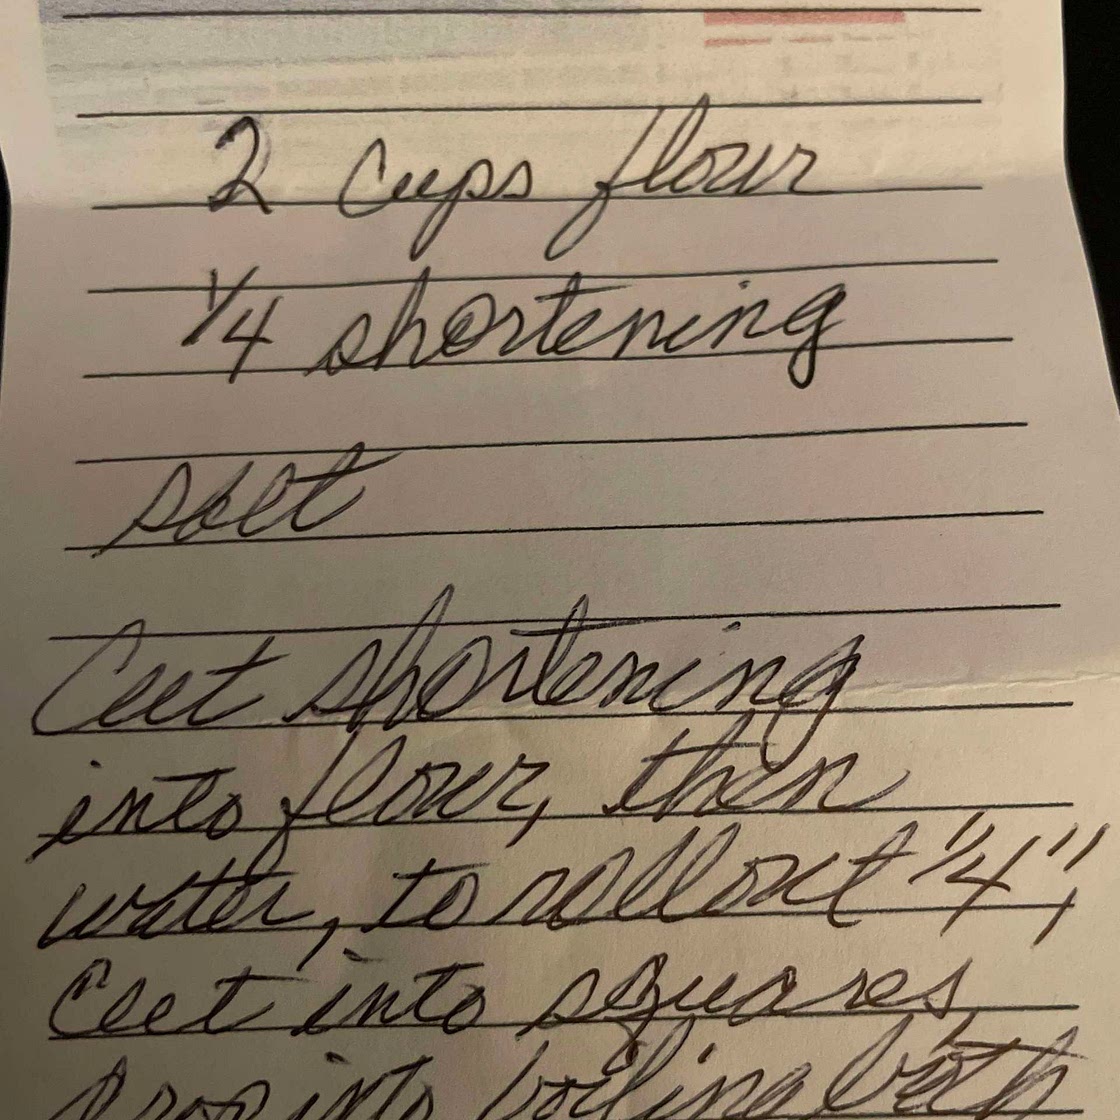 2 Cups flour
1/4 shortening
salt
Cut shortening
into flour, then
water, to roll out 1/4",
Cut into squares
drop into boiling broth